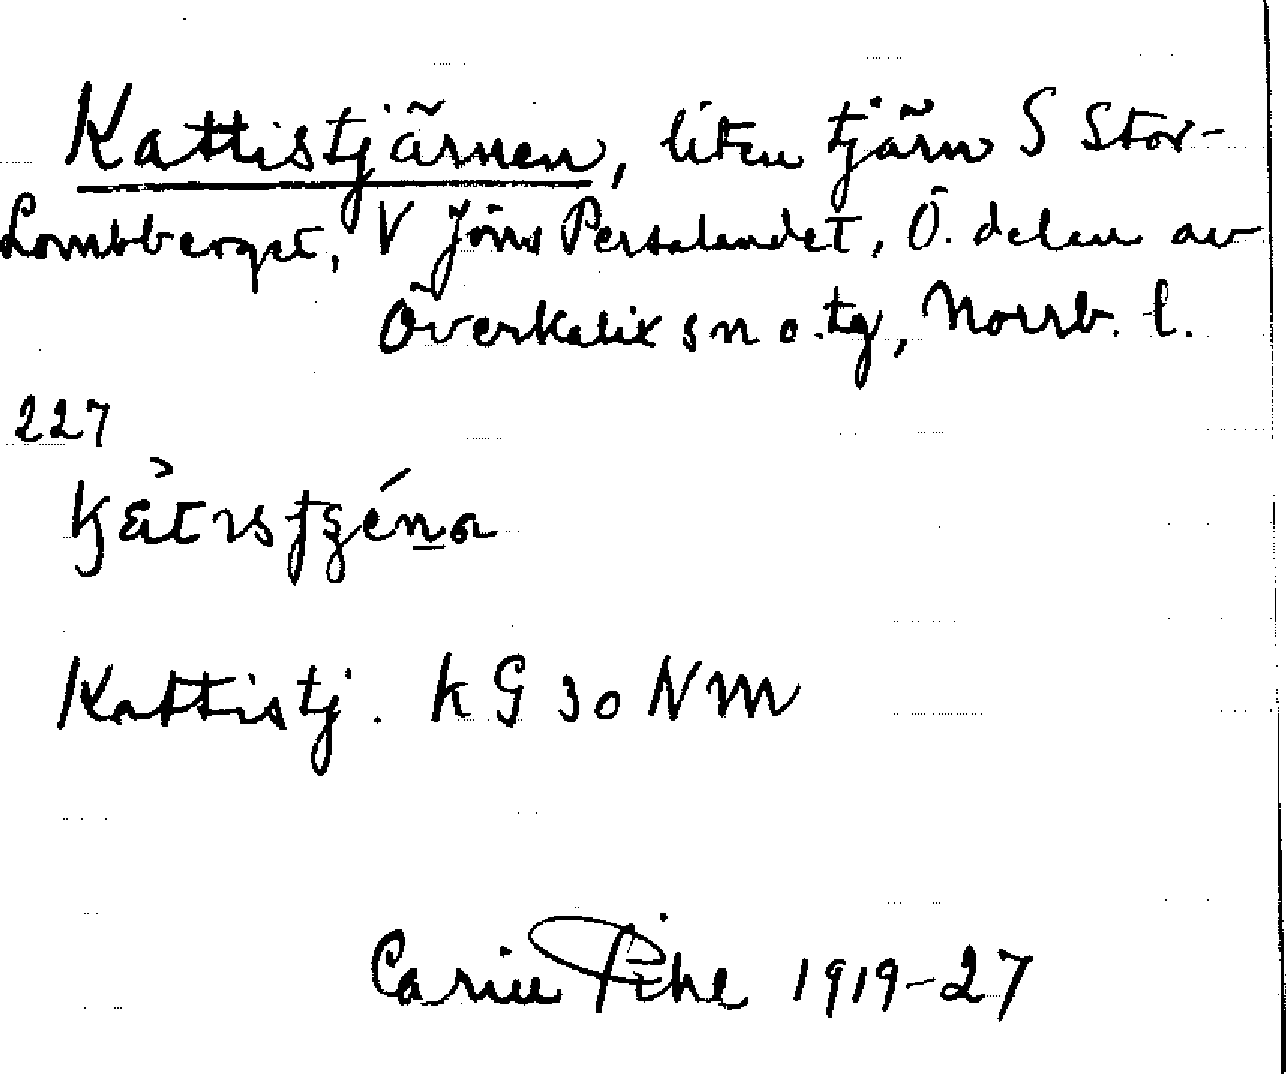 Kattistjärnen, liten tjärn S Stor-
Lombberget, V Jöns Persalandet, Ö. delen av
Överkalix sn o. tg, Norrb. l.
227
Kattistj. KG 30 NM
Carin Pihl 1919-27